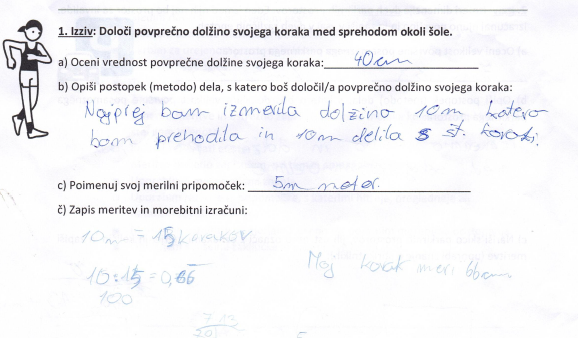 1. Izziv: Določi povprečno dolžino svojega koraka med sprehodom okoli šole.
a) Oceni vrednost povprečne dolžine svojega koraka: 40cm
b) Opiši postopek (metodo) dela, s katero boš določil/a povprečno dolžino svojega koraka:
Najprej bom izmerila dolžino 10m katero
bom prehodila in 10m delila s št. koraki.
c) Poimenuj svoj merilni pripomoček: 5m meter.
č) Zapis meritev in morebitni izračuni:
10m = 15 korakov
Moj korak meri 66cm
10:15=0,66
100
713